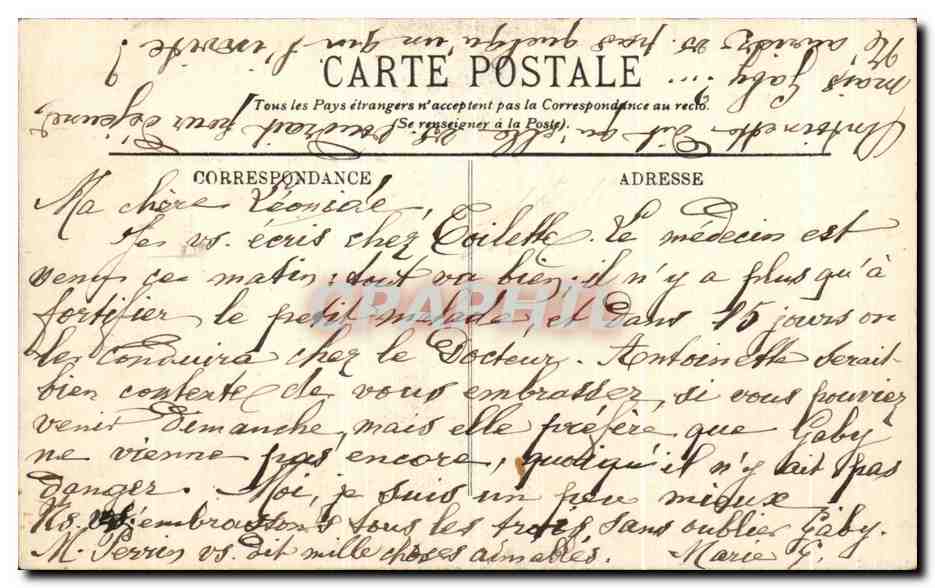 CARTE POSTALE
Tous les Pays étrangers n'acceptent pas la Correspondance au recto.
(Se renseigner à la Poste).
CORRESPONDANCE
ADRESSE
Ma chère Léonide,
Je vs. écris chez Toilette. Le médecin est
venu ce matin : tout va bien ; il n'y a plus qu'à
fortifier le petit malade, et dans 15 jours on
le conduira chez le Docteur. Antoinette serait
bien contente de vous embrasser, si vous pouviez
venir Dimanche, mais elle préfère que Gaby
ne vienne pas encore, quoiqu'il n'y ait pas
danger. Moi, je suis un peu mieux
Ns. vs. embrassons tous les trois sans oublier Gaby.
M. Perrin vs. dit mille choses aimables. Marie G.
Antoinette dit qu'elle voudrait pour déjeuner,
mais Gaby ...
Ne auriez vs. pas quelqu'un qui l'invite ?
CPAPHIL